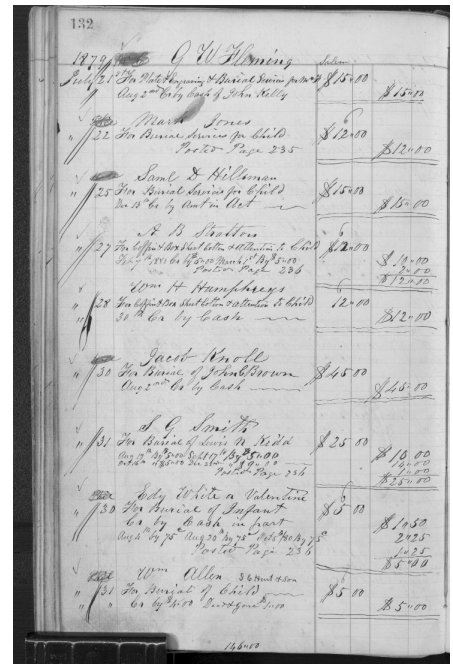 132
1879 G W Fleming Salem
July 21st For Plate Engraving & Burial Services for $15.00
Aug 2nd Cr by Cash of John Kelly $15.00
Mark Jones
" 22 For Burial Services for Child $12.00
Posted Page 235 $12.00
Saml D Hillsman
" 25 For Burial Services for Child $15.00
Dec 13th Cr by Amt in Act $15.00
A B Stratton
" 27 For Coffin & Box Sheet Cotton & attention to Child $12.00
Feby 1881 Cr by 5.00 March 1st By $5.00 $10.00
Posted Page 236 2.00
$12.00
Wm H Humphreys
" 28 For Coffin & Box Sheet Cotton & attention to Child 12.00
" 30th Cr by Cash $12.00
Jacob Knoll
" 30 For Burial of John C Brown $45.00
Aug 2nd Cr by Cash $45.00
S G Smith
" 31 For Burial of Lewis N Kidd $25.00
Aug $5.00 Sept 17th By $5.00 $10.00
Posted Page 236
$25.00
Edy White n Valentine
" 30 For Burial of Infant $5.00
Cr by Cash in part $1.50
Aug 4th by 75c Aug 20th by 75c Oct 5th 80 By 75c 2.25
Posted Page 236 1.25
$5.00
Wm Allen
" 31 For Burial of Child $5.00
" " Cr by $4.00 $5.00
146.00